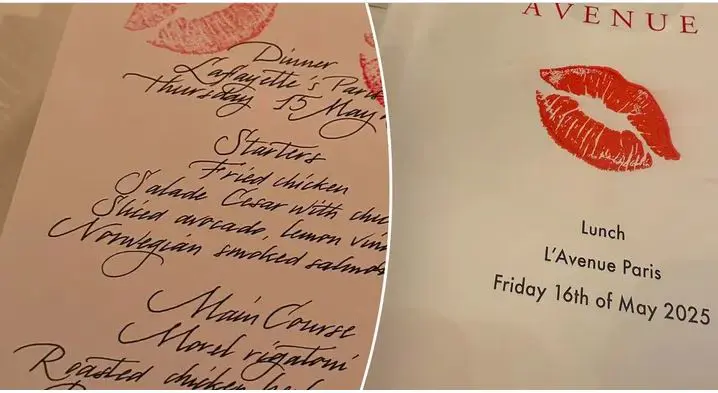 Dinner
Lafayette's
Thursday 15 May
Starters
Fried chicken
Salade Cesar with
Sliced avocado, lemon
Norwegian smoked salmon
Main Course
Morel rigatoni
Roasted chicken
AVENUE
Lunch
L'Avenue Paris
Friday 16th of May 2025